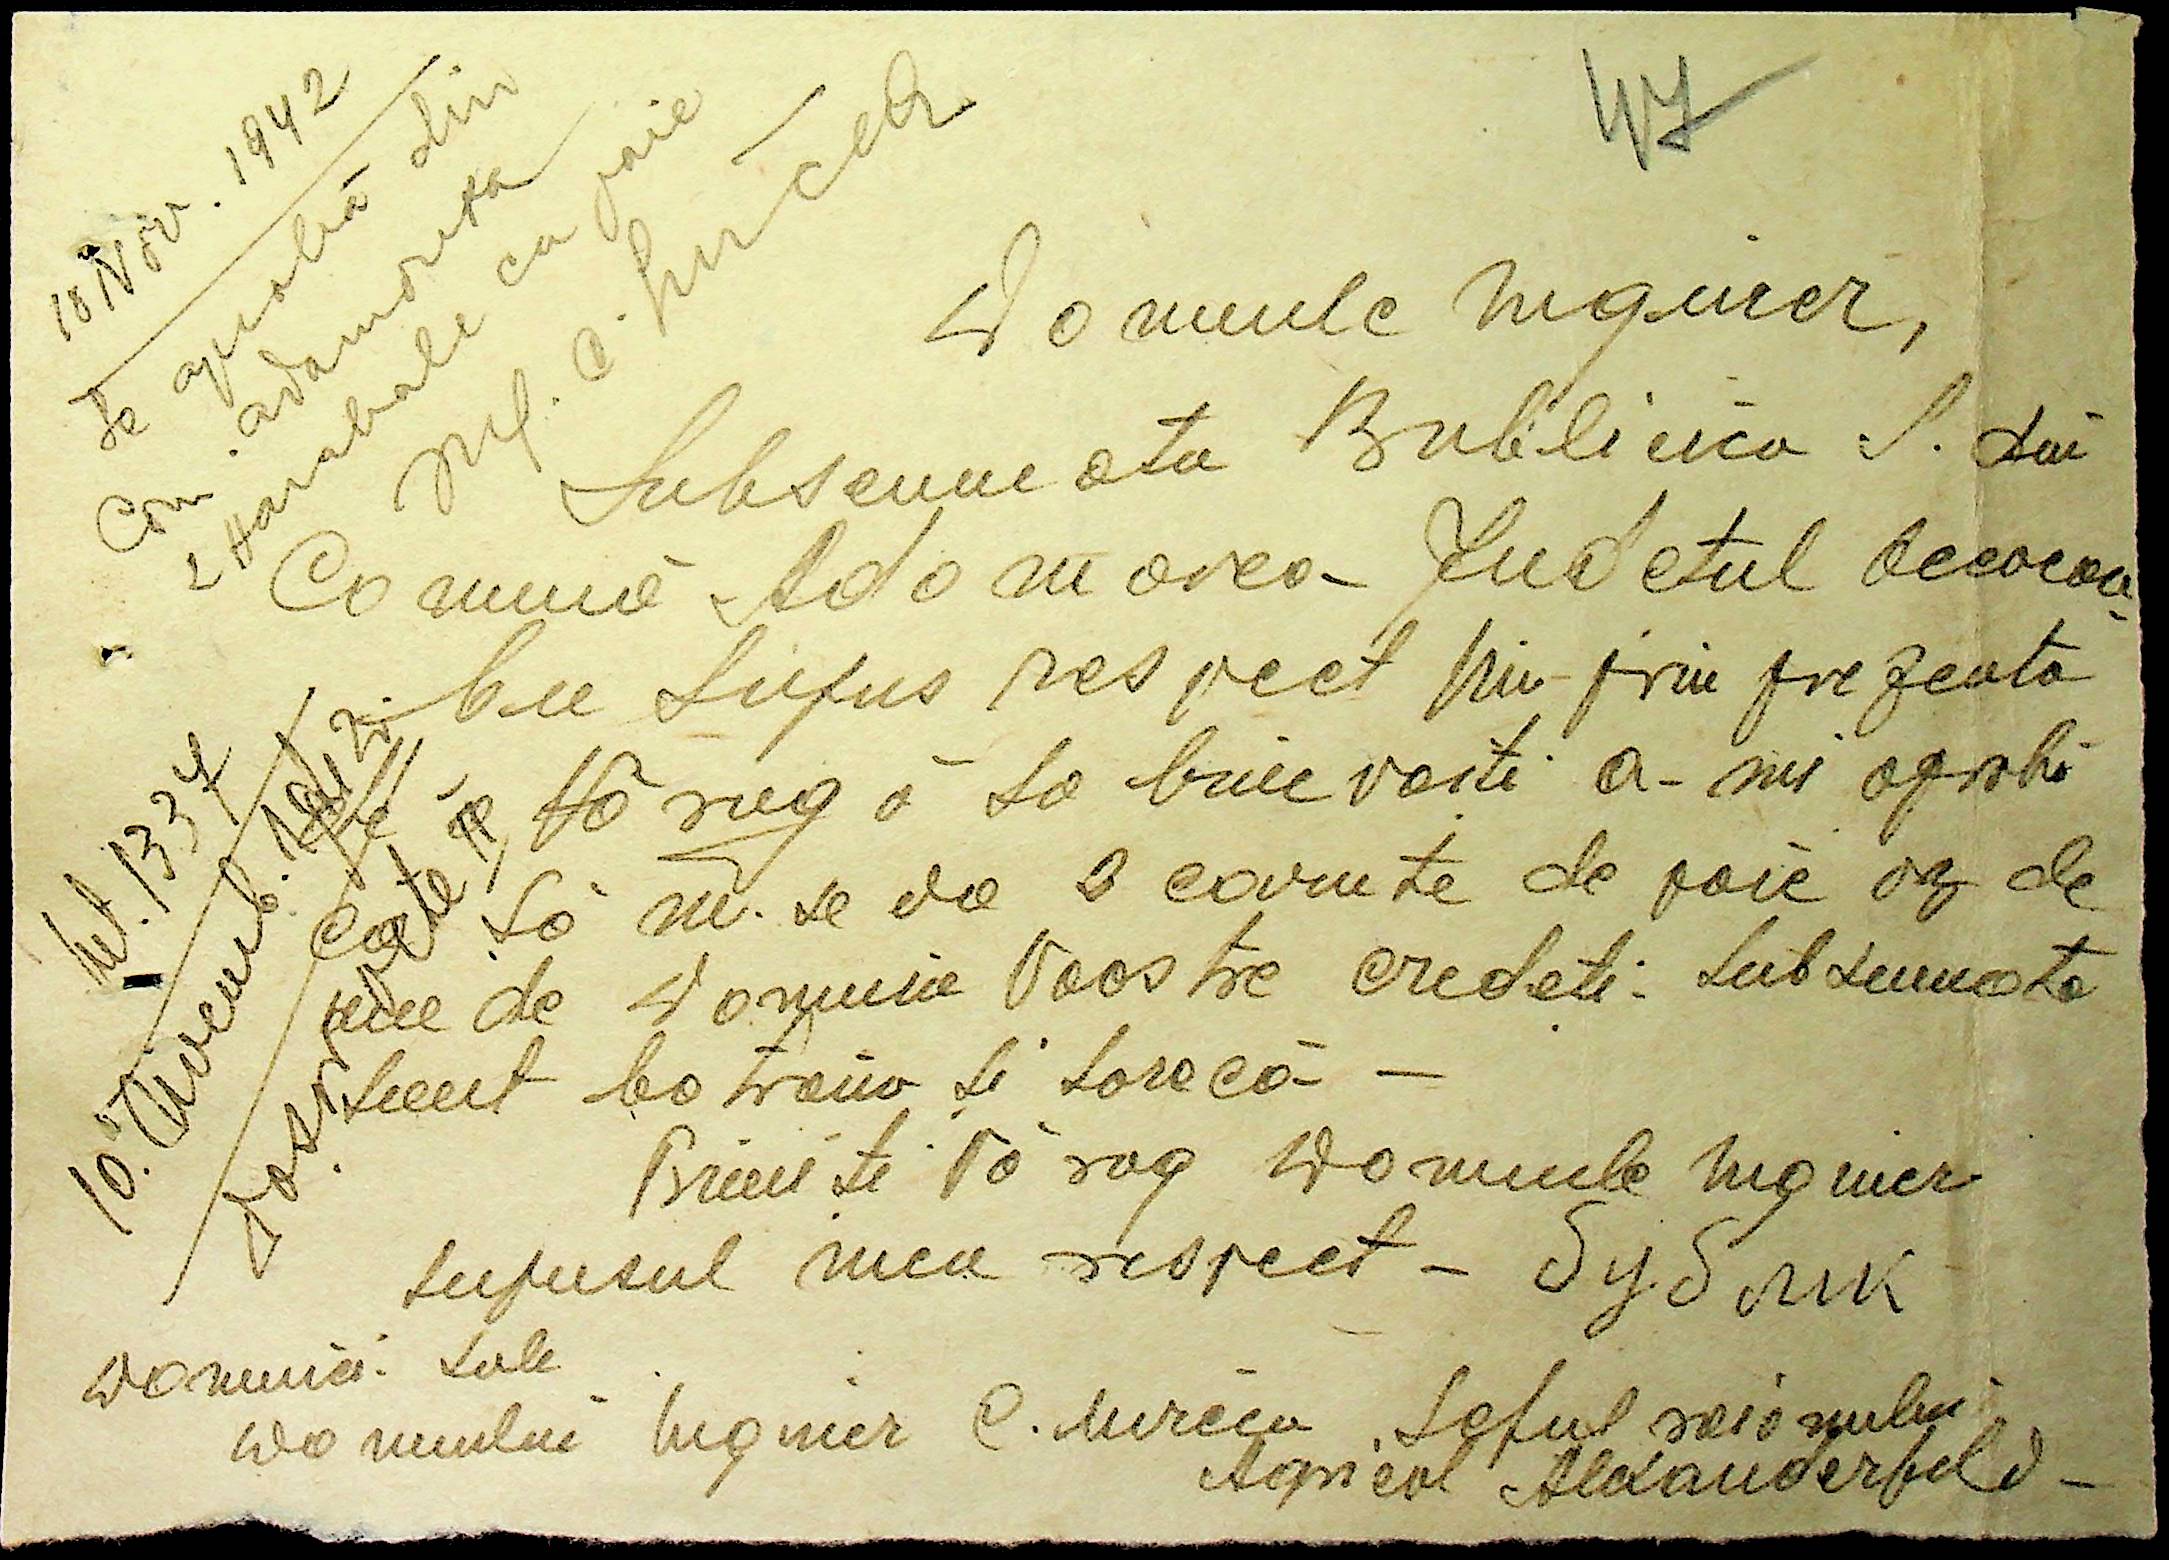 47
10 Nov. 1942
Se aprobă din
com. Adamovka
2 Harabale cu paie
Domnule Inginer,
Subsemnata Bublinica S. din
Comună Adomovca Judetul
Cu supus respect Vin prin prezenta
Vă rog a să binevoiti a-mi aproba
ca Să mi se da 2 caruite de paie
de Domnia Voastre credeti. Subsemnata
Sunt batrăna si saracă -
Primiti Vă rog Domnule Inginer
supusul meu respect - Бублик
Domniei Sale
Domnului Inginer C. Mircea Seful raionului
Agricol Alexanderfeld -
1337
10 Noiemb. 1942